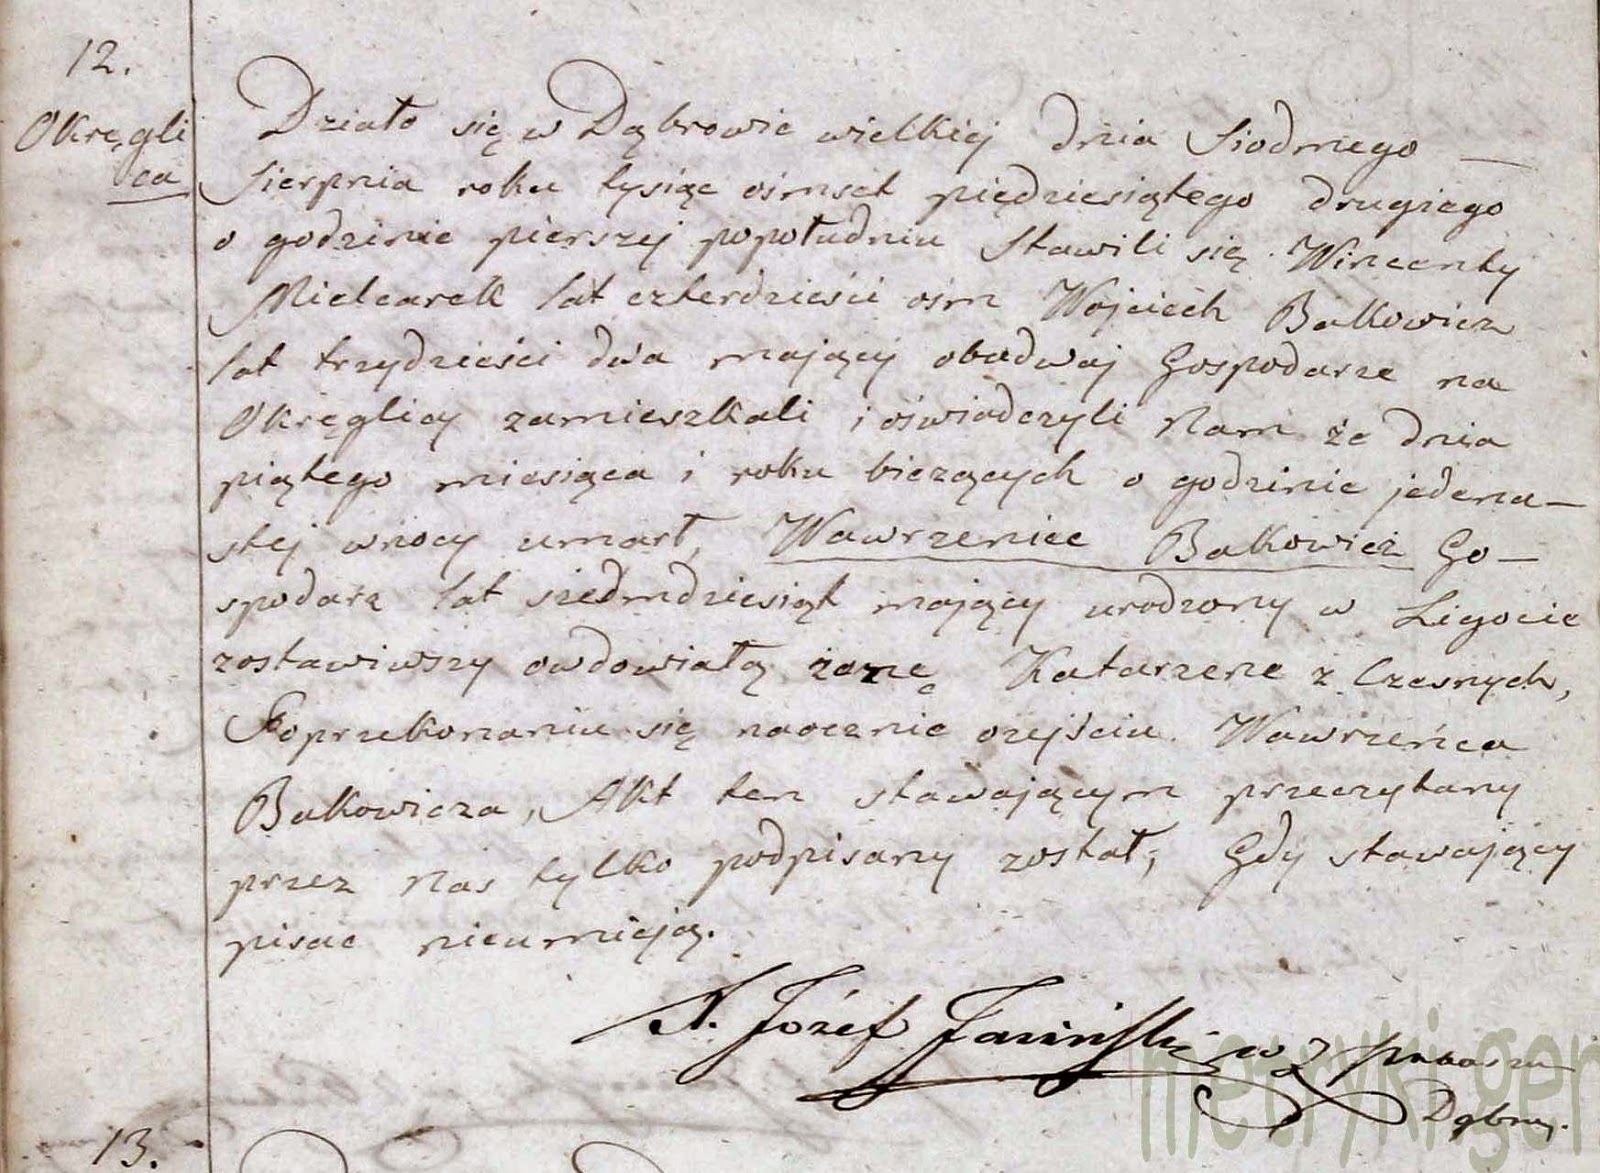 12.
Okręgli
ca
Działo się w Dąbrowie wielkiej dnia Siodmego —
Sierpnia roku tysiąc ośmset piędziesiątego drugiego
o godzinie pierszej popołudniu Stawili się Wincenty
Mielcarek lat czterdzieści ośm Woyciech Bałkowicz
lat trzydzieści dwa mający obadwaj Gospodarze na
Okręglicy zamieszkali i oświadczyli Nam że dnia
piątego miesiąca i roku bieżących o godzinie jedena—
stej wnocy umarł, Wawrzeniec Bałkowicz Go—
spodarz lat siedmdziesiąt mający urodzony w Ligocie
zostawiwszy owdowiałą żonę Katarzenę z Czesnych,
Poprzekonaniu się naocznie ozejściu Wawrzeńca
Bałkowicza, Akt ten stawającym przeczytany
przez Nas tylko podpisany został, Gdy stawający
pisac nieumieją.
X. Józef
Dąbrowy.
13.
metryki.gen